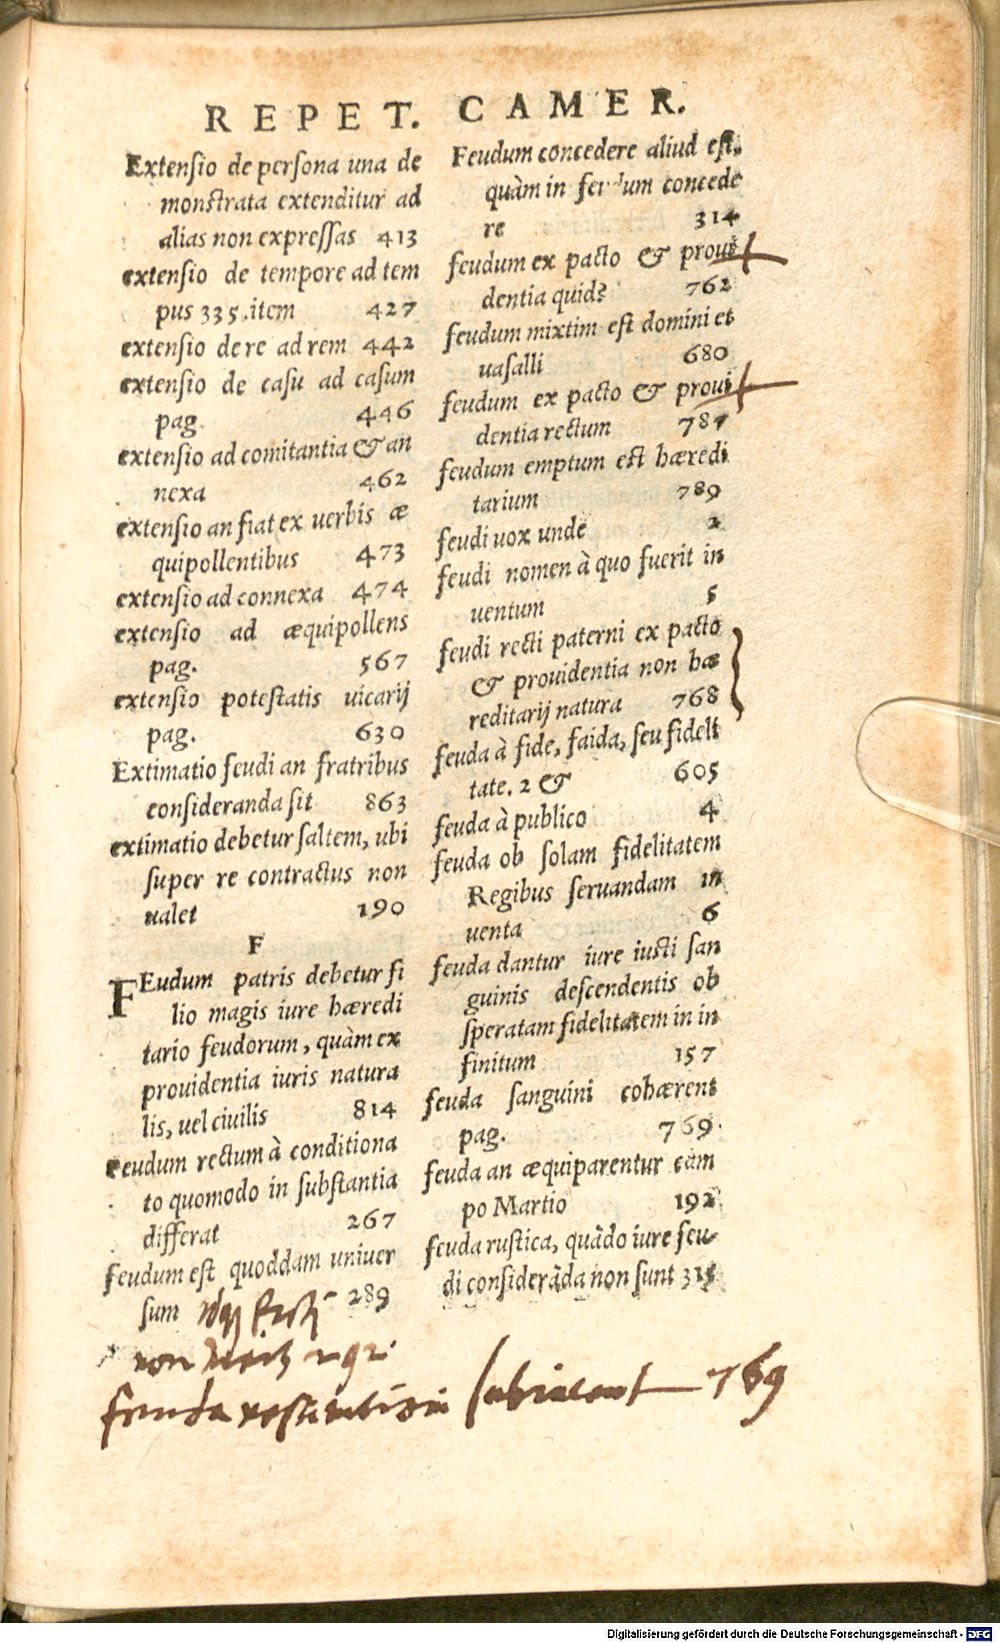 REPET. CAMER.
Extensio de persona una de
monstrata extenditur ad
alias non expressas 413
extensio de tempore ad tem
pus 335. item 427
extensio de re ad rem 442
extensio de casu ad casum
pag. 446
extensio ad comitantia & an
nexa 462
extensio an fiat ex uerbis æ
quipollentibus 473
extensio ad connexa 474
extensio ad æquipollens
pag. 567
extensio potestatis uicarij
pag. 630
Extimatio feudi an fratribus
consideranda sit 863
extimatio debetur saltem, ubi
super re contractus non
ualet 190
F
FEudum patris debetur fi
lio magis iure hæredi
tario feudorum, quàm ex
prouidentia iuris natura
lis, uel ciuilis 814
feudum rectum à conditiona
to quomodo in substantia
differat 267
feudum est quoddam uniuer
sum 289
non 292.
feuda restitutioni subiacent 769
Feudum concedere aliud est,
quàm in feudum concede
re 314
feudum ex pacto & proui
dentia quid? 762
feudum mixtim est domini et
uasalli 680
feudum ex pacto & proui
dentia rectum 787
feudum emptum est hæredi
tarium 789
feudi uox unde 2
feudi nomen à quo fuerit in
uentum 5
feudi recti paterni ex pacto
& prouidentia non hæ
reditarij natura 768
feuda à fide, faida, seu fideli
tate. 2 & 605
feuda à publico 4
feuda ob solam fidelitatem
Regibus seruandam in
uenta 6
feuda dantur iure iusti san
guinis descendentis ob
speratam fidelitatem in in
finitum 157
feuda sanguini cohærent
pag. 769.
feuda an æquiparentur cam
po Martio 192
feuda rustica, quãdo iure feu
di considerãda non sunt 315
Digitalisierung gefördert durch die Deutsche Forschungsgemeinschaft - DFG